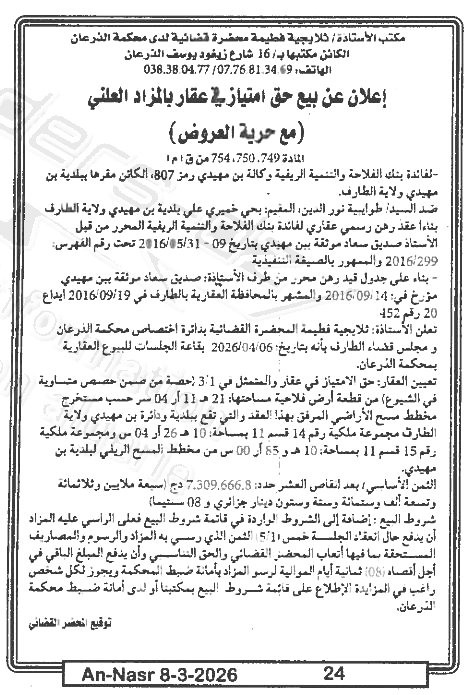 مكتب الأستاذة/ ثلايجية فطيمة محضرة قضائية لدى محكمة الذرعان
الكائن مكتبها بـ/ 16 شارع زيغود يوسف الذرعان
الهاتف: 07.76.81.34.69/ 038.38.04.77
إعلان عن بيع حق امتياز في عقار بالمزاد العلني
(مع حرية العروض)
المادة 749، 750، 754 من ق ا م ا
-لفائدة بنك الفلاحة والتنمية الريفية وكالة بن مهيدي رمز 807، الكائن مقرها ببلدية بن
مهيدي ولاية الطارف.
ضد السيد/ طوايبية نور الدين، المقيم: بحي خميري علي بلدية بن مهيدي ولاية الطارف
بناءا عقد رهن رسمي عقاري لفائدة بنك الفلاحة والتنمية الريفية المحرر من قبل
الأستاذ صديق سعاد موثقة ببن مهيدي بتاريخ 09 -2016/05/31 تحت رقم الفهرس:
2016/299 والممهور بالصيغة التنفيذية
- بناء على جدول قيد رهن محرر من طرف الأستاذة: صديق سعاد موثقة ببن مهيدي
مؤرخ في: 2016/09/14 والمشهر بالمحافظة العقارية بالطارف في 2016/09/19 ايداع
20 رقم 452
تعلن الأستاذة: ثلايجية فطيمة المحضرة القضائية بدائرة اختصاص محكمة الذرعان
و مجلس قضاء الطارف بأنه بتاريخ: 2026/04/06 بقاعة الجلسات للبيوع العقارية
بمحكمة الذرعان.
تعيين العقار: حق الامتياز في عقار والمتمثل في 3/1 (حصة من ضمن حصص متساوية
في الشيوع) من قطعة أرض فلاحية مساحتها: 21 هـ 11 أر 04 سر حسب مستخرج
مخطط مسح الأراضي المرفق بهذا العقد والتي تقع ببلدية ودائرة بن مهيدي ولاية
الطارف مجموعة ملكية رقم 14 قسم 11 بمساحة: 10 هـ 26 أر 04 س ومجموعة ملكية
رقم 15 قسم 11 بمساحة: 10 هـ و 85 أر 00 س من مخطط المسح الريفي لبلدية بن
مهيدي.
الثمن الأساسي/ بعد إنقاص العشر حدد: 7.309.666.8 دج (سبعة ملايين وثلاثمائة
وتسعة ألف وستمائة وستة وستون دينار جزائري و 08 سنتيما)
شروط البيع : إضافة إلى الشروط الواردة في قائمة شروط البيع فعلى الراسي عليه المزاد
أن يدفع حال انعقاد الجلسة خمس (5/1) الثمن الذي رسي به المزاد والرسوم والمصاريف
المستحقة بما فيها أتعاب المحضر القضائي والحق التناسبي وأن يدفع المبلغ الباقي في
أجل أقصاه (08) ثمانية أيام الموالية لرسو المزاد بأمانة ضبط المحكمة ويجوز لكل شخص
راغب في المزايدة الإطلاع على قائمة شروط البيع بمكتبنا أو لدى أمانة ضبط محكمة
الذرعان.
توقيع المحضر القضائي
An-Nasr 8-3-2026 24